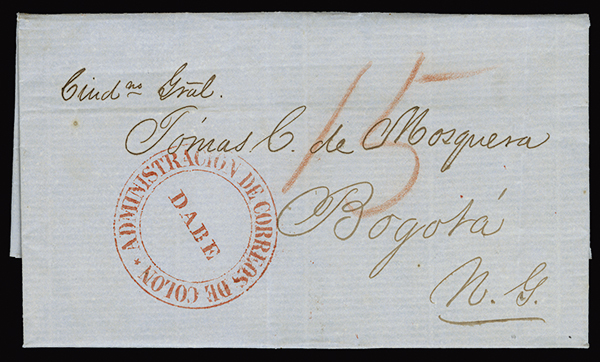 Ciudno Gral.
Tómas C. de Mosquera
15
Bogotá
N. G.
* ADMINISTRACION DE CORREOS DE COLON
DABE